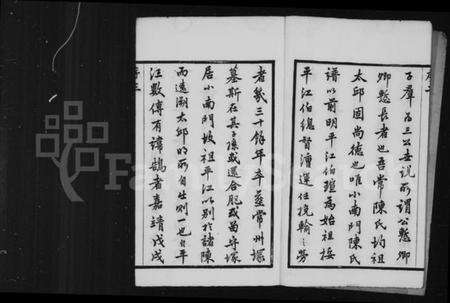 子羣為三公世說所謂公慙卿
卿慙長者也吾常陳氏均祖
太邱固尚德也唯小南門陳氏
譜以前明平江伯瑄為始祖按
平江伯總督漕運任挽輸之勞
者幾三十餘年卒葬常州塚
墓斯在其子孫或還合肥或留守塚
居小南門故祖平江以別於諸陳
而遠溯太邱明所自出則一也自平
江數傳有諱鵠者嘉靖戊戌
FamilySearch